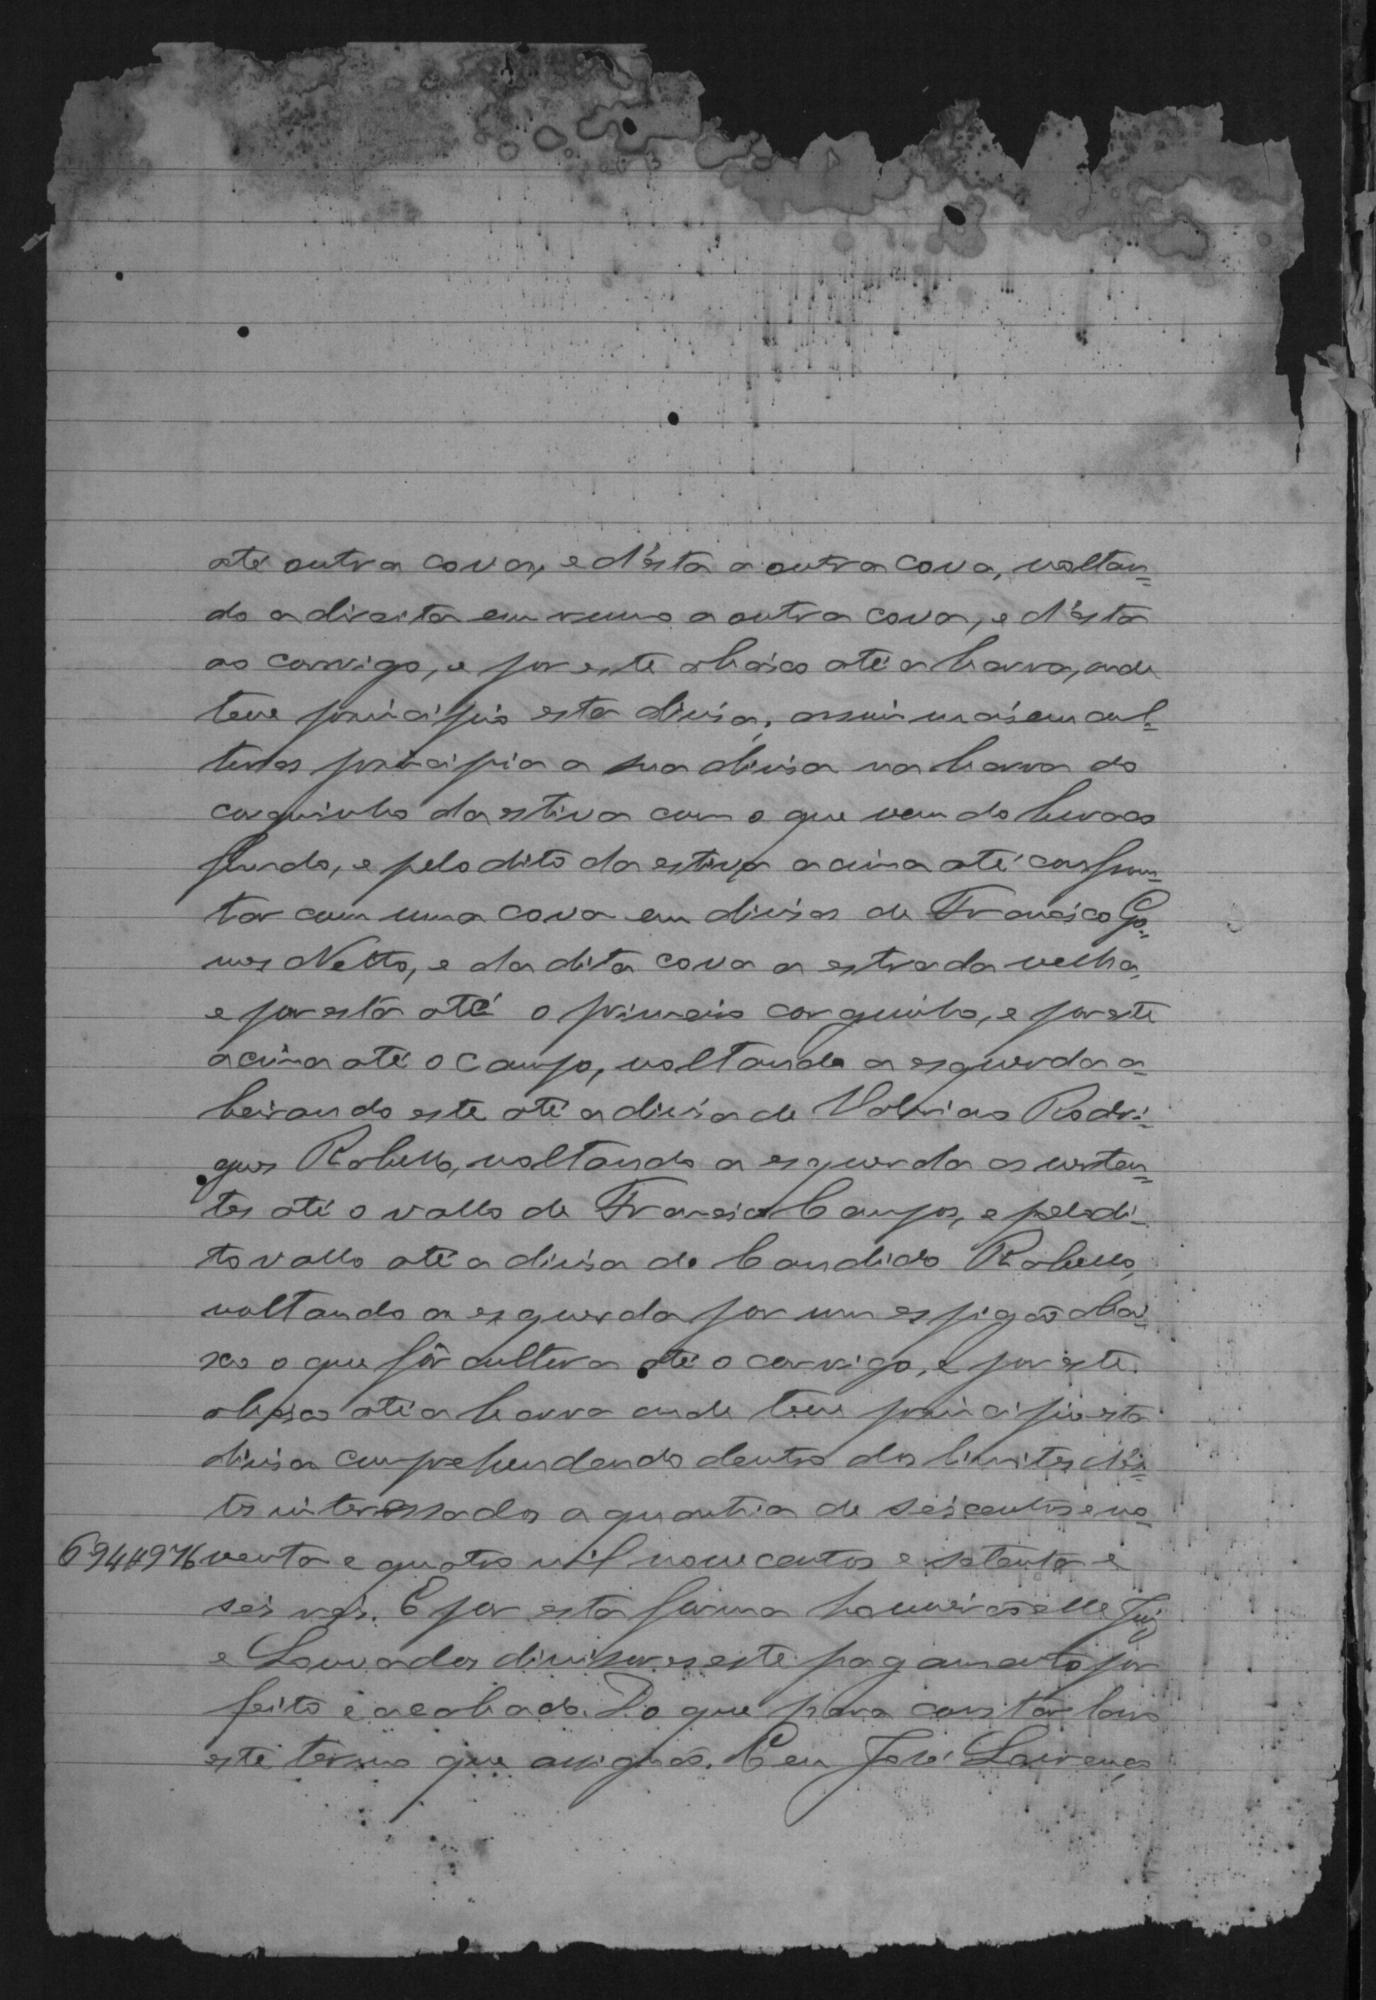 até outra cova, e d'ésta a outra cova, voltan=
do a direita em rumo a outra cova, e d'ésta
ao corrigo, e por este abáico até a barra, onde
teve principio esta divisa; assim máis em cul=
turas principia a sua divisa na barra do
corguinho da estiva com o que vem do buraco
fundo, e pelo dito da estiva acima até confron=
tar com uma cova em divisas de Francisco Go=
mes Netto, e da dita cova a estrada velha,
e por esta até o primeiro corguinho, e por este
acima até o campo, voltando a esquerda a=
beirando este até a divisa de Valerian Rodri=
gues Rabello, voltando a esquerda as verten=
tes até o vallo de Francisco Campos, e pelo di=
to vallo até a divisa de Candido Rabello,
voltando a esquerda por um espigão abai=
xo o que fôr cultura até o corrigo, e por este
abáico até a barra onde teve principio esta
divisa comprehendendo dentro dos limites dés=
te interessados a quantia de seiscentos e no=
694#976 venta e quatro mil novecentos e setenta e
seis reis. E por esta forma houverão elle Juiz
e Louvados divisores este pagamento por
feito e acabado. Do que para constar lavro
este termo que assignão. Eu José Lourenço